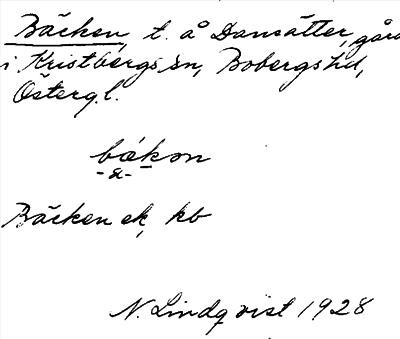 Bäcken, t. å Dansätter, gård
i Kristbergs sn, Bobergs hd,
Östergl.
bäkon
-a-
Bäcken ek, kb
N. Lindqvist 1928